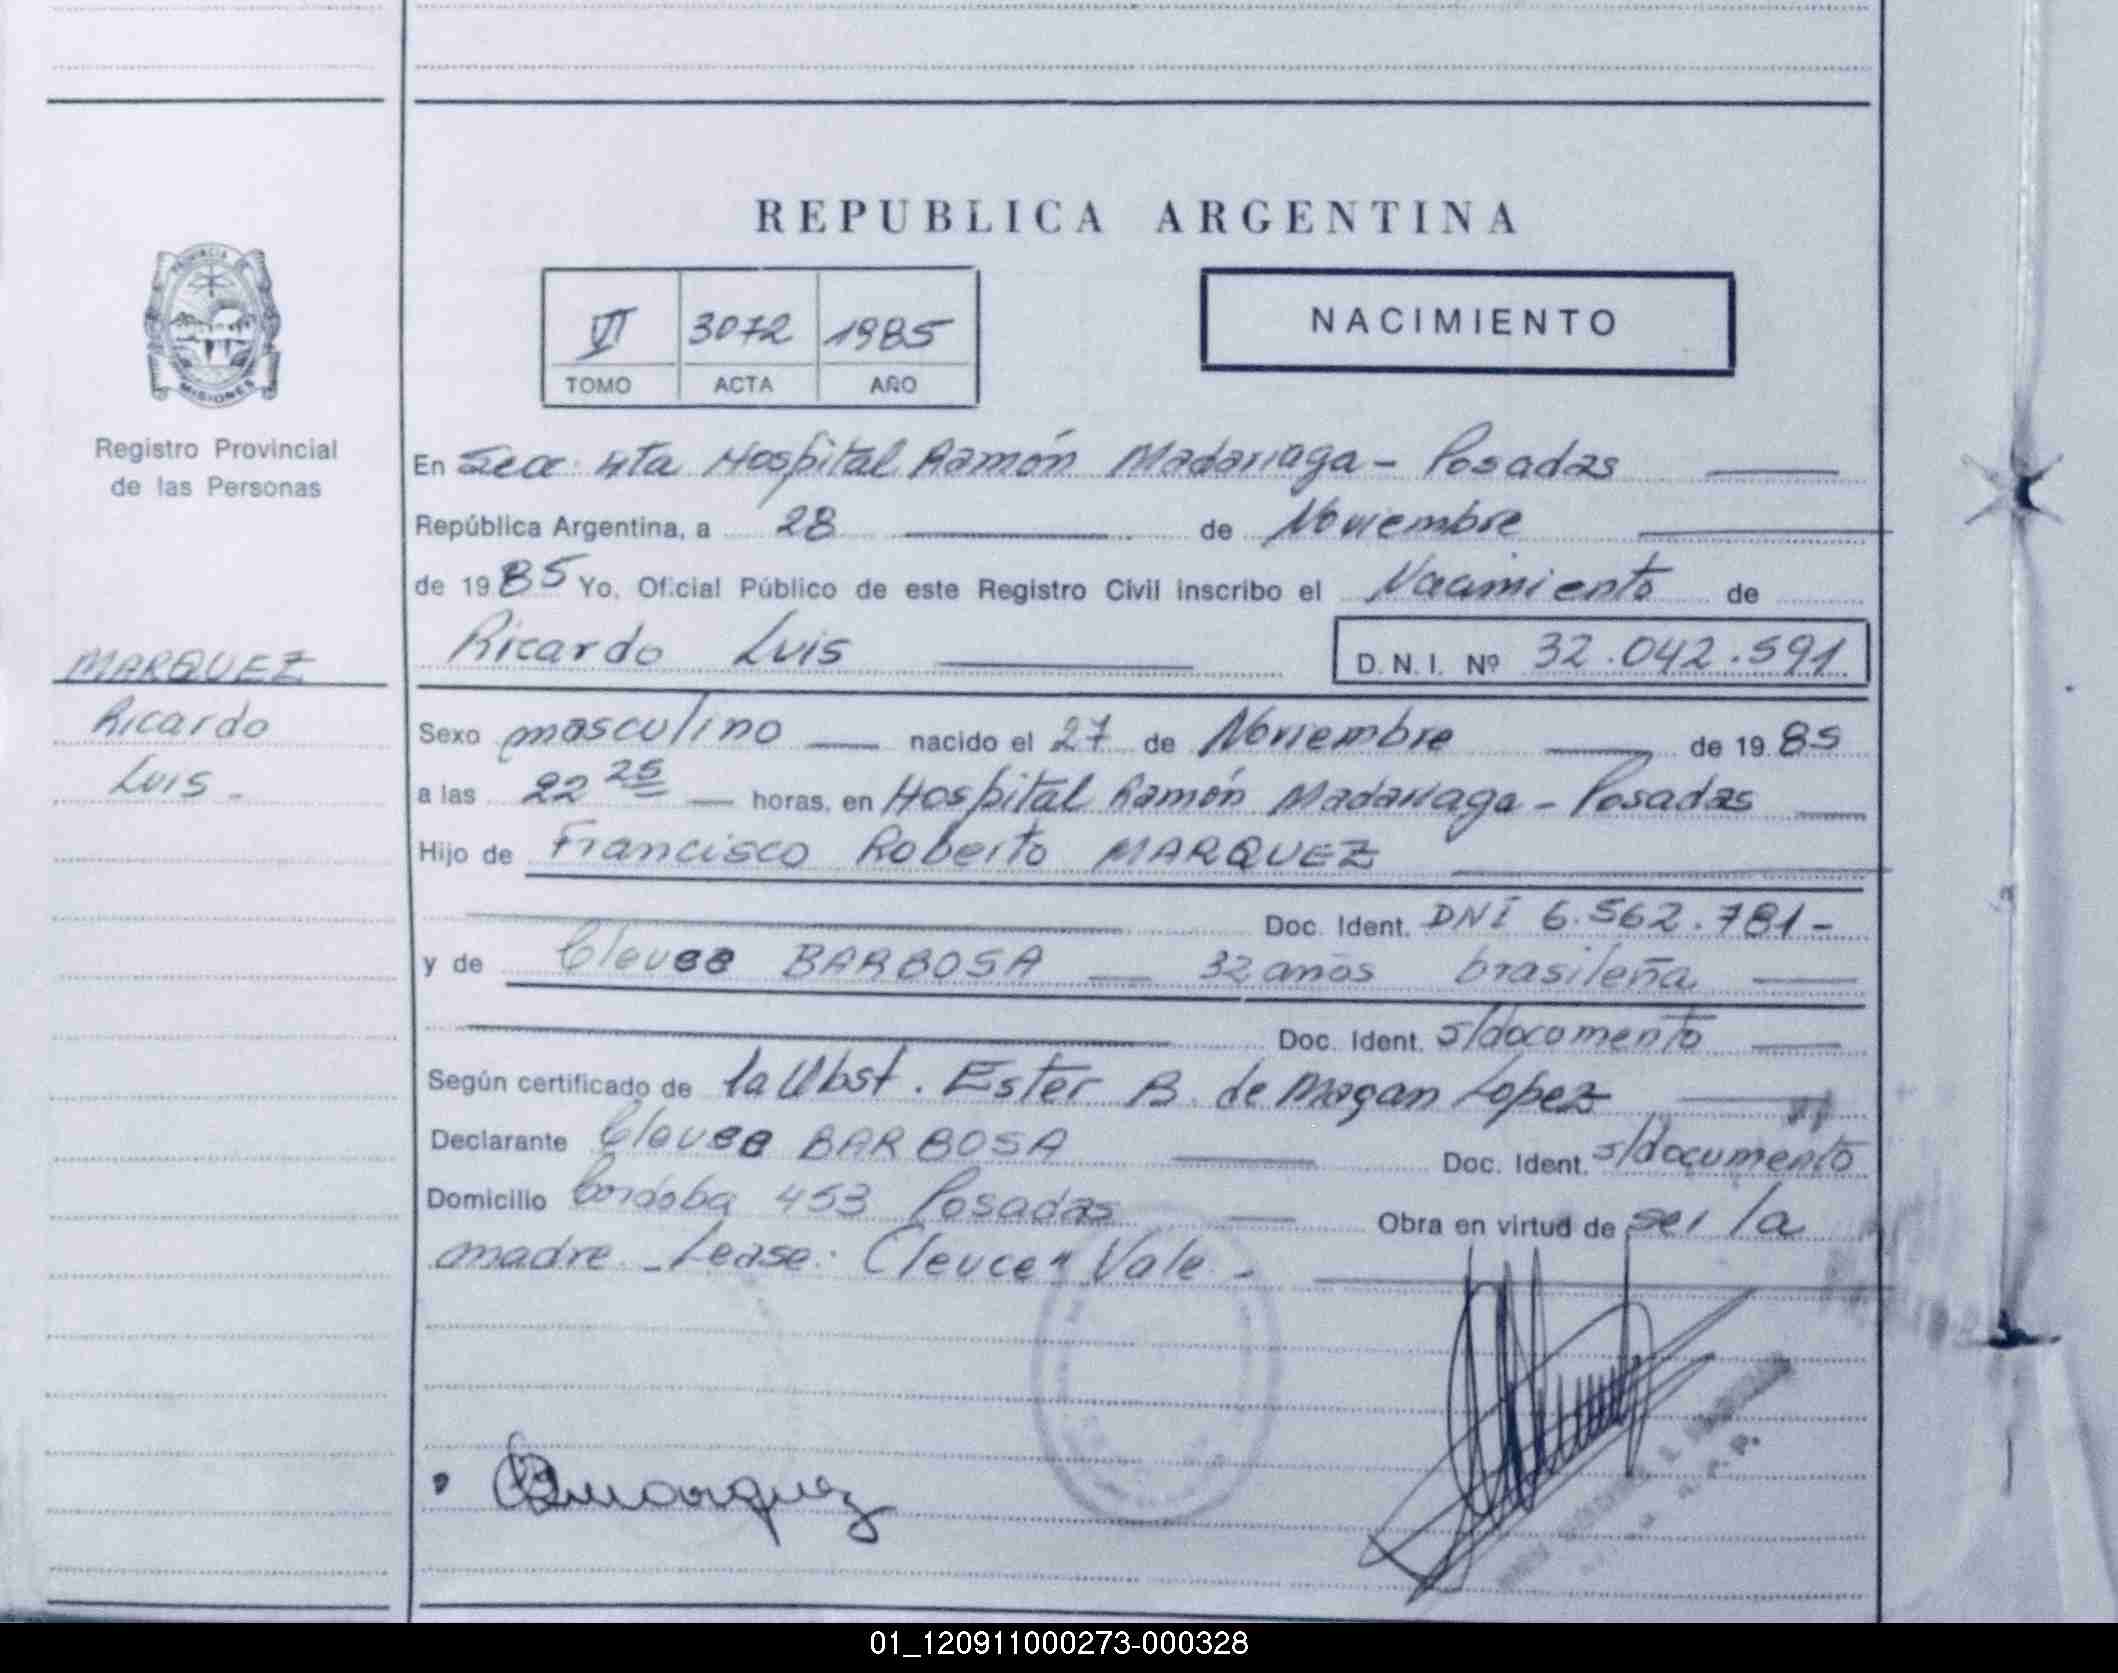 REPUBLICA ARGENTINA
VI 3072 1985
TOMO ACTA AÑO
NACIMIENTO
PROVINCIA
MISIONES
Registro Provincial
de las Personas
MARQUEZ
Ricardo
Luis -
En Secc. 4ta Hospital Ramón Madariaga - Posadas
República Argentina, a 28 de Noviembre
de 1985 Yo, Oficial Público de este Registro Civil inscribo el Nacimiento de
Ricardo Luis D. N. I. Nº 32.042.591
Sexo masculino nacido el 27 de Noviembre de 1985
a las 22 25 horas, en Hospital Ramón Madariaga - Posadas
Hijo de Francisco Roberto MARQUEZ
Doc. Ident. DNI 6.562.781 -
y de BARBOSA 32 años brasileña
Doc. Ident. s/documento
Según certificado de la Obst. Ester B. de Magan Lopez
Declarante BARBOSA Doc. Ident. s/documento
Domicilio Cordoba 453 Posadas Obra en virtud de ser la
madre - Lease: Cleuce" Vale -
Marquez
01_120911000273-000328